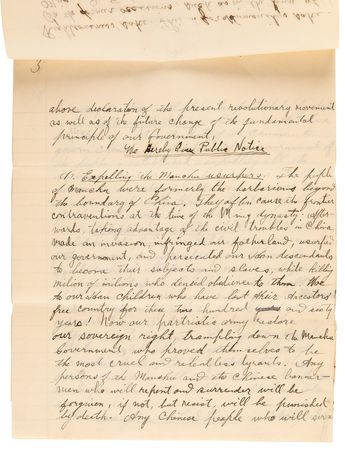 3
above declaration of the present revolutionary movement
as well as of the future change of the fundamental
principle of our Government,
We Hereby Give Public Notice
1. Expelling the Manchu usurpers. The people
of Manchu were formerly the barbarious beyond
the boundary of China. They often cause the frontier
contraventions at the time of the Ming dynasty. After-
wards, taking advantage of the civil troubles in China
made an invasion, infringed our fatherland, usurped
our government, and persecuted our Han descendants
to become their subjects and slaves, while killing
million of millions who denied obedience to them. Woe
to our Han Children who have lost their Ancestors'
free country for these two hundred and sixty
years! Now our partriotic army restore
our sovereign right, trampling down the Manchu
Government, who proved themselves to be
the most cruel and relentless tyrants. Any
persons of the Manchu and the Chinese banner-
men who will repent and surrender will be
forgiven, if not, but resist, will be punished
by death. Any Chinese people who will